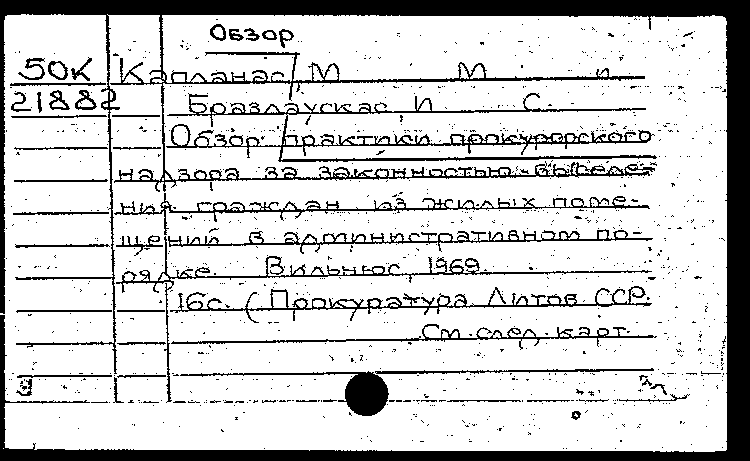 Обзор
50К Капланас, М М и
21882 Бразлаускас, И С.
Обзор практики прокурорского
надзора за законностью выселе-
ния граждан из жилых поме-
щений в административном по-
рядке. Вильнюс, 1969.
16с. (Прокуратура Литов ССР.
См. след. карт.